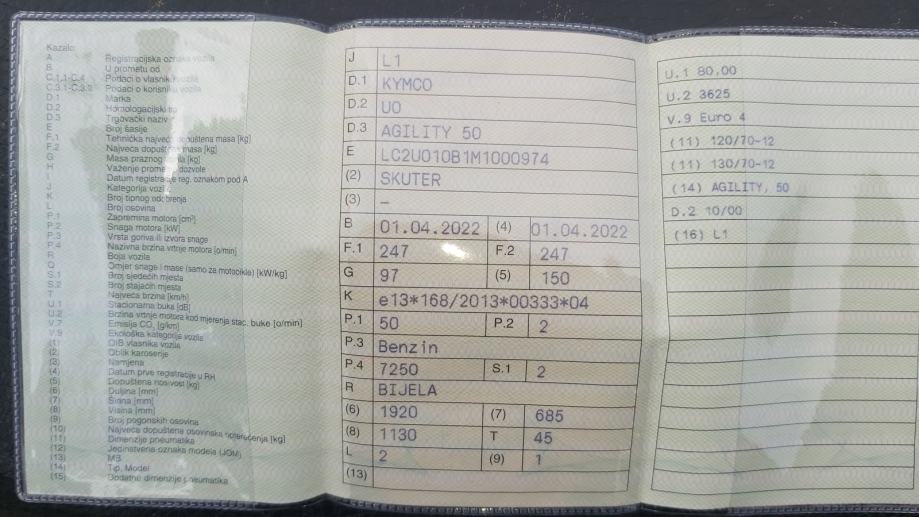 Kazalo:
A Registracijska oznaka vozila
B U prometu od
C.1.1-C.4 Podaci o vlasniku vozila
C.3.1-C.3.3 Podaci o korisniku vozila
D.1 Marka
D.2 Homologacijski tip
D.3 Trgovački naziv
E Broj šasije
F.1 Tehnička najveća dopuštena masa [kg]
F.2 Najveća dopuštena masa [kg]
G Masa praznog vozila [kg]
H Važenje prometne dozvole
I Datum registracije reg. oznakom pod A
J Kategorija vozila
K Broj tipnog odobrenja
L Broj osovina
P.1 Zapremina motora [cm³]
P.2 Snaga motora [kW]
P.3 Vrsta goriva ili izvora snage
P.4 Nazivna brzina vrtnje motora [o/min]
R Boja vozila
Q Omjer snage i mase (samo za motocikle) [kW/kg]
S.1 Broj sjedećih mjesta
S.2 Broj stajaćih mjesta
T Najveća brzina [km/h]
U.1 Stacionarna buka [dB]
U.2 Brzina vrtnje motora kod mjerenja stac. buke [o/min]
V.7 Emisija CO₂ [g/km]
V.9 Ekološka kategorija vozila
(1) OIB vlasnika vozila
(2) Oblik karoserije
(3) Namjena
(4) Datum prve registracije u RH
(5) Dopuštena nosivost [kg]
(6) Duljina [mm]
(7) Širina [mm]
(8) Visina [mm]
(9) Broj pogonskih osovina
(10) Najveća dopuštena osovinska opterećenja [kg]
(11) Dimenzije pneumatika
(12) Jedinstvena oznaka modela (JOM)
(13) MB
(14) Tip, Model
(15) Dodatne dimenzije pneumatika
J L1
D.1 KYMCO
D.2 UO
D.3 AGILITY 50
E LC2U010B1M1000974
(2) SKUTER
(3) –
B 01.04.2022 (4) 01.04.2022
F.1 247 F.2 247
G 97 (5) 150
K e13*168/2013*00333*04
P.1 50 P.2 2
P.3 Benzin
P.4 7250 S.1 2
R BIJELA
(6) 1920 (7) 685
(8) 1130 T 45
L 2 (9) 1
(13)
U.1 80,00
U.2 3625
V.9 Euro 4
(11) 120/70-12
(11) 130/70-12
(14) AGILITY, 50
D.2 10/00
(16) L1